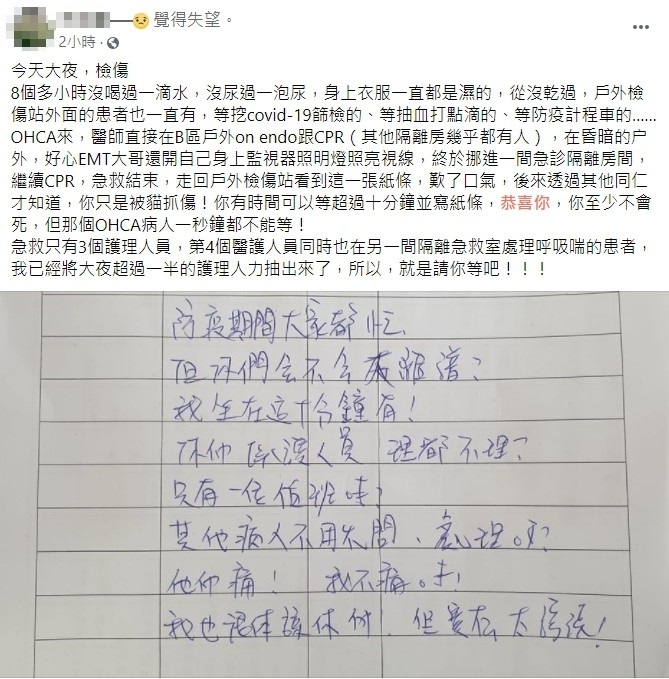 覺得失望。
2小時
今天大夜，檢傷
8個多小時沒喝過一滴水，沒尿過一泡尿，身上衣服一直都是濕的，從沒乾過，戶外檢
傷站外面的患者也一直有，等挖covid-19篩檢的、等抽血打點滴的、等防疫計程車的......
OHCA來，醫師直接在B區戶外on endo跟CPR（其他隔離房幾乎都有人），在昏暗的戶
外，好心EMT大哥還開自己身上監視器照明燈照亮視線，終於挪進一間急診隔離房間，
繼續CPR，急救結束，走回戶外檢傷站看到這一張紙條，歎了口氣，後來透過其他同仁
才知道，你只是被貓抓傷！你有時間可以等超過十分鐘並寫紙條，恭喜你，你至少不會
死，但那個OHCA病人一秒鐘都不能等！
急救只有3個護理人員，第4個醫護人員同時也在另一間隔離急救室處理呼吸喘的患者，
我已經將大夜超過一半的護理人力抽出來了，所以，就是請你等吧！！！
防疫期間大家都忙
但你們会不会太離譜？
我坐在這十分鐘有！
你們医護人員 理都不理？
只有一位值班哇？
其他病人不用先問、處理嗎？
他们痛！ 我不痛。
我也認体諒你们！但實在太誇張！